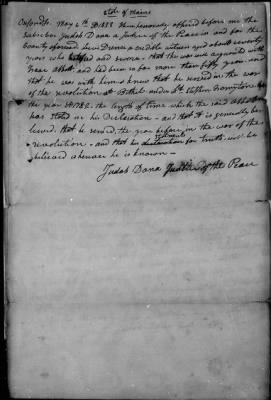 State of Maine
Oxford ss. May 4th 1838 Then personally appeared before me the
subscriber Judah Dana a Justice of the Peace in and for this
County aforesaid, a credible witness aged about seventy
years who testified and swore that he was well acquainted with
Isaac Abbot, and had been so for more than fifty years and
that he was with him & knew that he served in the war
of the revolution at Bethel under Lt.
the year 1782. the length of time which the said Abbot
has stated in his Declaration - and that it is generally be
lieved, that he served, the year before, in the war of the
revolution - and that his statement for truth, will be
believed wherever he is known -
Judah Dana Justice of the Peace